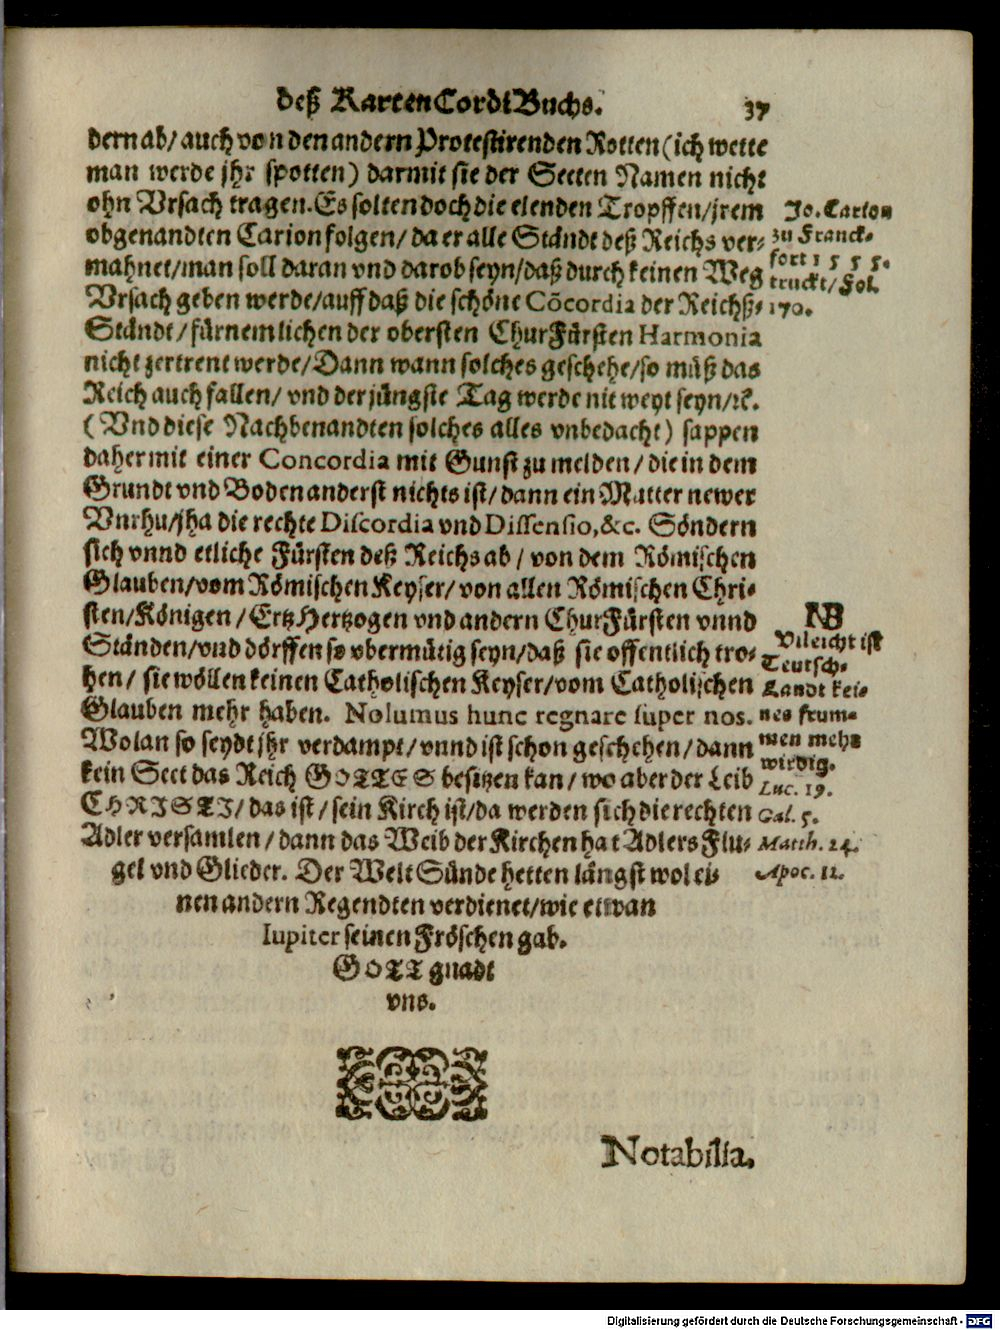 deß KartenCordiBuchs. 37
dern ab/ auch von den andern Protestirenden Rotten (ich wette
man werde jhr spotten) darmit sie der Secten Namen nicht
ohn Vrsach tragen. Es solten doch die elenden Tropffen/ jrem
obgenandten Carion folgen/ da er alle Ständt deß Reichs ver-
mahnet/ man soll daran vnd darob seyn/ daß durch keinen Weg
Vrsach geben werde/ auff daß die schöne Cõcordia der Reichß-
Ständt/ fürnemlichen der obersten ChurFürsten Harmonia
nicht zertrent werde/ Dann wann solches geschehe/ so müß das
Reich auch fallen/ vnd der jüngste Tag werde nit weyt seyn/ ꝛc.
(Vnd diese Nachbenandten solches alles vnbedacht) sappen
daher mit einer Concordia mit Gunst zu melden/ die in dem
Grundt vnd Boden anderst nichts ist/ dann ein Matter newer
Vnrhu/ jha die rechte Discordia vnd Dissensio, &c. Söndern
sich vnnd etliche Fürsten deß Reichs ab/ von dem Römischen
Glauben/ vom Römischen Keyser/ von allen Römischen Chri-
sten/ Königen/ ErtzHertzogen vnd andern ChurFürsten vnnd
Ständen/ vnd dörffen so vbermütig seyn/ daß sie offentlich tro-
hen/ sie wöllen keinen Catholischen Keyser/ vom Catholischen
Glauben mehr haben. Nolumus hunc regnare super nos.
Wolan so seydt jhr verdampt/ vnnd ist schon geschehen/ dann
kein Sect das Reich GOTTES besitzen kan/ wo aber der Leib
CHRISTI/ das ist/ sein Kirch ist/ da werden sich die rechten
Adler versamlen/ dann das Weib der Kirchen hat Adlers Flu-
gel vnd Glieder. Der Welt Sünde hetten längst wol ei-
nen andern Regendten verdienet/ wie etwan
Iupiter seinen Fröschen gab.
GOTT gnadt
vns.
Jo. Carion
zu Franck-
fort 1555.
truckt/ Fol.
170.
NB
Vileicht ist
Teutsch-
Landt kei-
nes frum-
men mehr
wirdig.
Luc. 19.
Gal. 5.
Matth. 24.
Apoc. 12.
Notabilia.
Digitalisierung gefördert durch die Deutsche Forschungsgemeinschaft - DFG